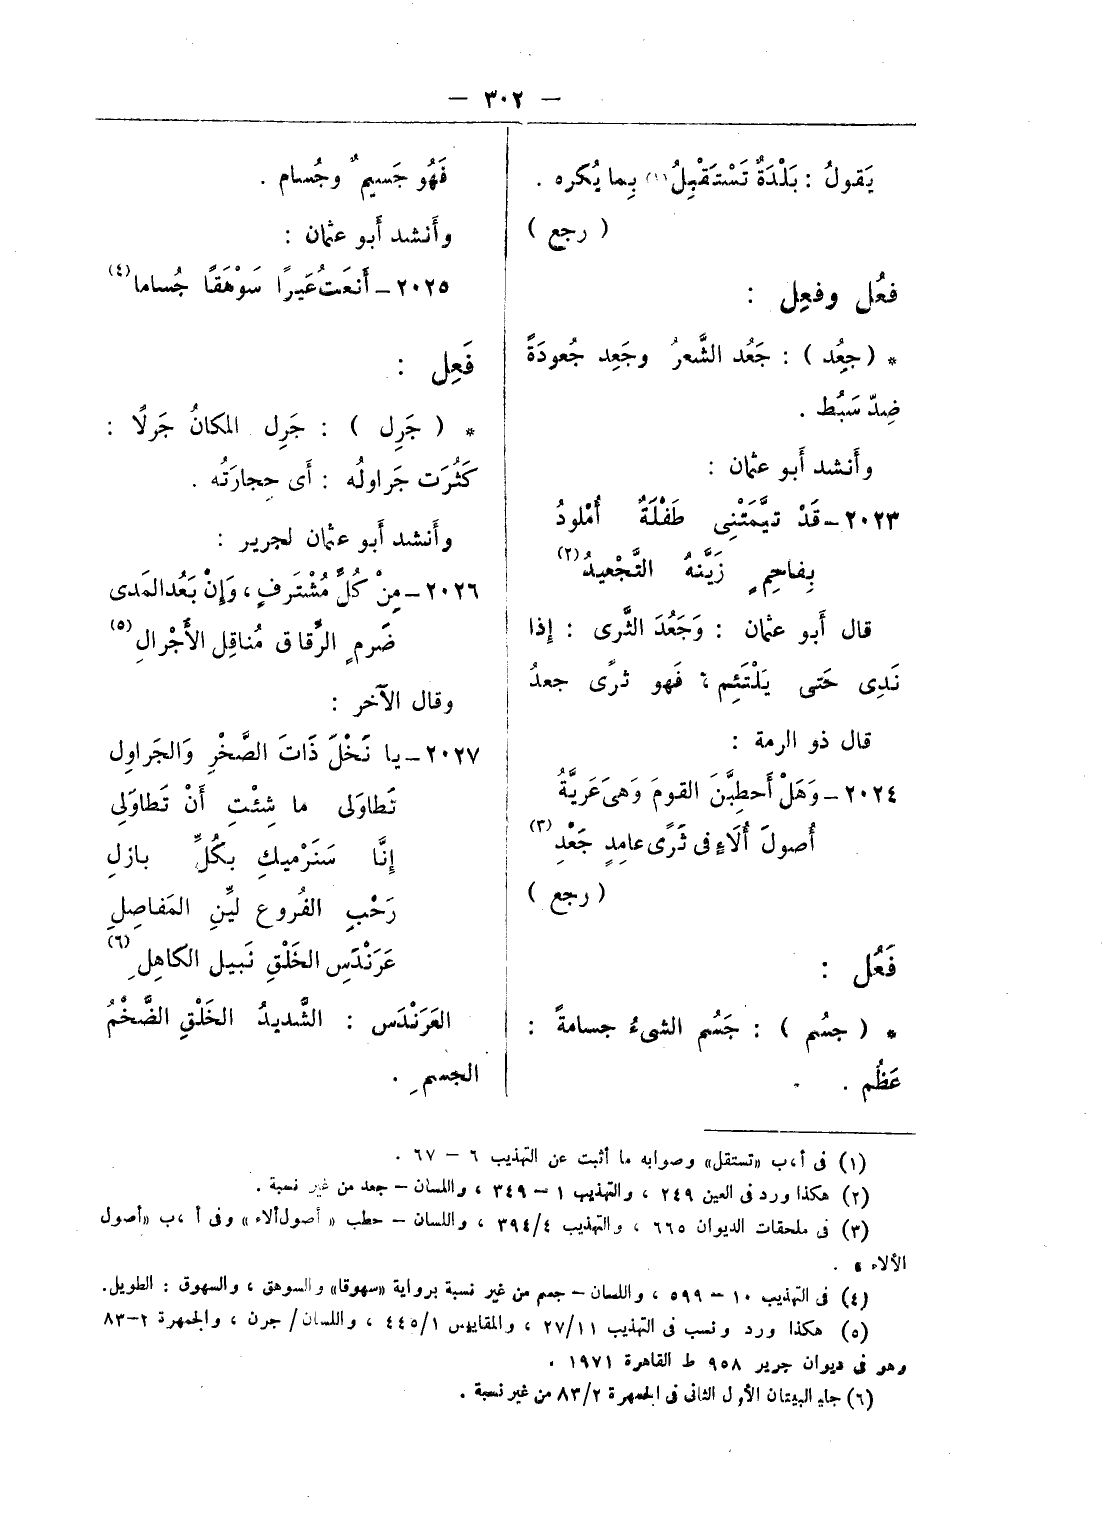 — ٣٠٢ —
يَقولُ : بَلْدَةٌ تَسْتَقْبِلُ(١) بِما يُكره .
( رجع )
فعُل وفعِل :
* ( جعِد ) : جَعُد الشَّعرُ وجَعِد جُعودَةً
ضِدّ سَبُط .
وأَنشد أَبو عثمان :
٢٠٢٣ – قَدْ تيَّمَتْنِى طَفْلَةٌ أُمْلودُ
بِفاحِمٍ زَيَّنهُ التَّجْعيدُ(٢)
قال أَبو عثمان : وَجَعُدَ الثَّرى : إِذا
نَدِى حَتى يَلْتَئِم ، فَهو ثرًى جعدُ
قال ذو الرمة :
٢٠٢٤ – وَهَلْ أَحطِبَّنَ القومَ وَهىَ عَرِيَّةُ
أُصولَ أُلَاءٍ فى ثَرًى عامِدٍ جَعْدِ(٣)
( رجع )
فَعُل :
* ( جسُم ) : جَسُم الشىءُ جسامةً :
عَظُم .
فَهُو جَسيمٌ وجُسام .
وأَنشد أَبو عثمان :
٢٠٢٥ – أَنعَتُ عَيرًا سَوْهَقًا جُساما(٤)
فَعِل :
* ( جَرِل ) : جَرِل المكانُ جَرلًا :
كَثُرَت جَراولُه : أَى حِجارَتُه .
وأَنشد أَبو عثمان لجرير :
٢٠٢٦ – مِنْ كُلِّ مُشْتَرفٍ ، وَإِنْ بَعُد المَدى
ضَرمٍ الرَّقاق مُناقِل الأَجْرالِ(٥)
وقال الآخر :
٢٠٢٧ – يا نَخْلَ ذَاتَ الصَّخْرِ وَالجَراوِل
تَطاوَلى ما شِئْتِ أَنْ تَطاوَلِى
إِنَّا سَنَرْميكِ بكُلِّ بازلِ
رَحْبِ الفُروع ليِّنِ المَفاصِلِ
عَرَنْدَسِ الخَلْقِ نَبيل الكاهِلِ(٦)
العَرَنْدَس : الشَّديدُ الخَلْقِ الضَّخْمُ
الجسمِ .
(١) فى أ ، ب «تستقل» وصوابه ما أثبت عن التهذيب ٦ – ٦٧ .
(٢) هكذا ورد فى العين ٢٤٩ ، والتهذيب ١ – ٣٤٩ ، واللسان – جعد من غير نسبة .
(٣) فى ملحقات الديوان ٦٦٥ ، والتهذيب ٣٩٤/٤ ، واللسان – حطب « أصول ألاء » وفى أ ، ب «أصول
الألاء » .
(٤) فى التهذيب ١٠ – ٥٩٩ ، واللسان – جسم من غير نسبة برواية «سهوقا» والسوهق ، والسهوق : الطويل.
(٥) هكذا ورد ونسب فى التهذيب ٢٧/١١ ، والمقاييس ٤٤٥/١ ، واللسان/ جرن ، والجمهرة ٢–٨٣
وهو فى ديوان جرير ٩٥٨ ط القاهرة ١٩٧١ .
(٦) جاء البيتان الأول الثانى فى الجمهرة ٨٣/٢ من غير نسبة .